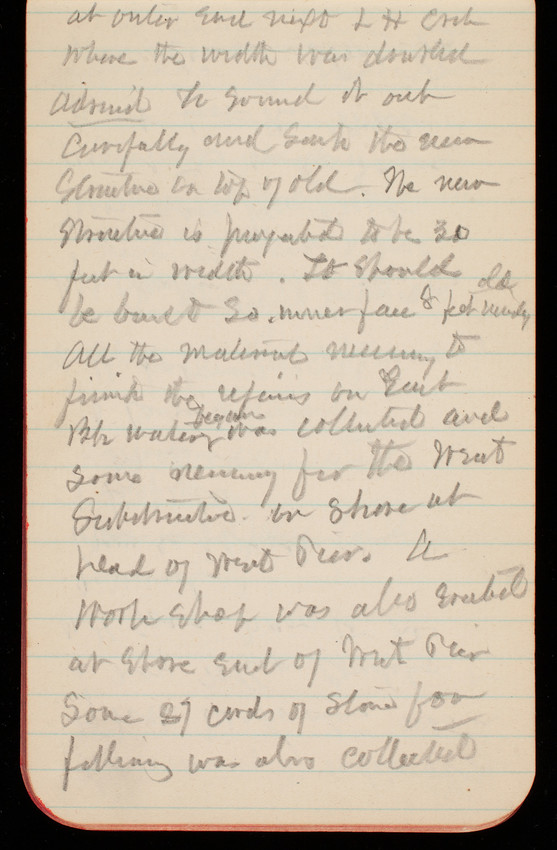 at outer end next L H Crib
where the width was doubled
advised to sound it out
carefully and sink the new
structure on top of old. The new
structure is projected to be 30
feet in width. It should
be built so inner face 8 feet
old
All the material necessary to
finish the repairs on East
Bk water was collected and
began
some necessary for the West
Substructure on shore at
head of West Pier. A
work shop was also erected
at shore end of West Pier
Some 27 cords of stone for
filling was also collected